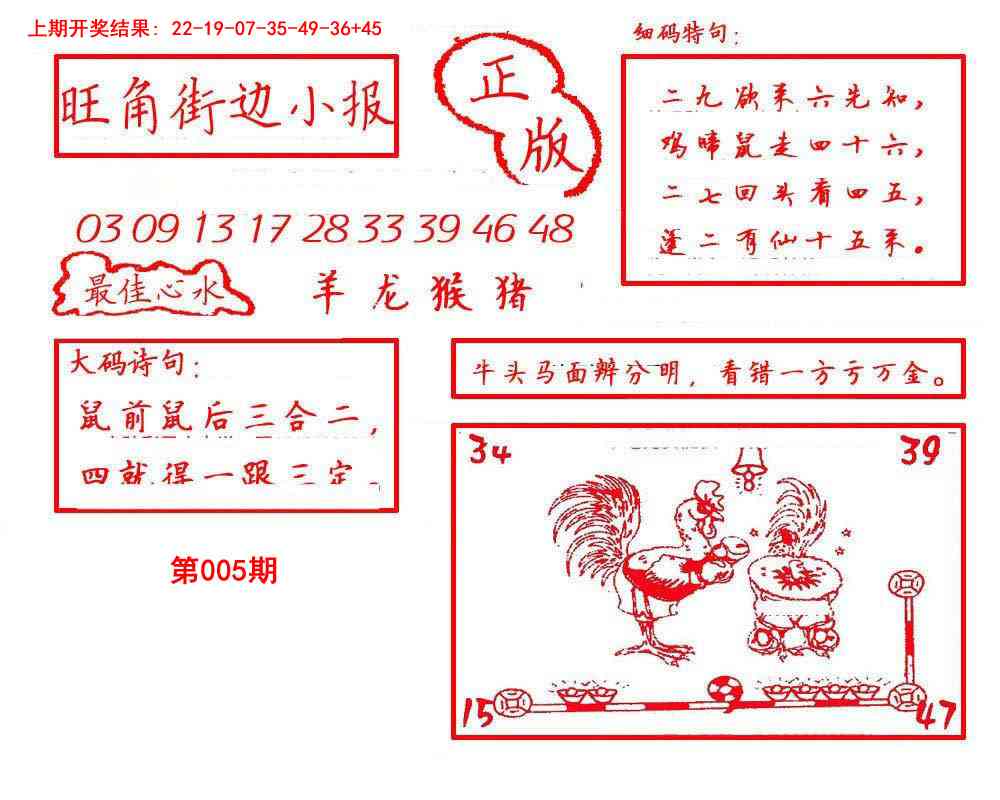 上期开奖结果: 22-19-07-35-49-36+45
旺角街边小报
正版
细码特句:
二九欲来六先知,
鸡啼鼠走四十六,
二七回头看四五,
逢二有仙十五来。
03 09 13 17 28 33 39 46 48
最佳心水
羊龙猴猪
大码诗句:
鼠前鼠后三合二,
四就得一跟三定.
牛头马面辩分明,看错一方亏万金。
34
39
8
15
47
第005期